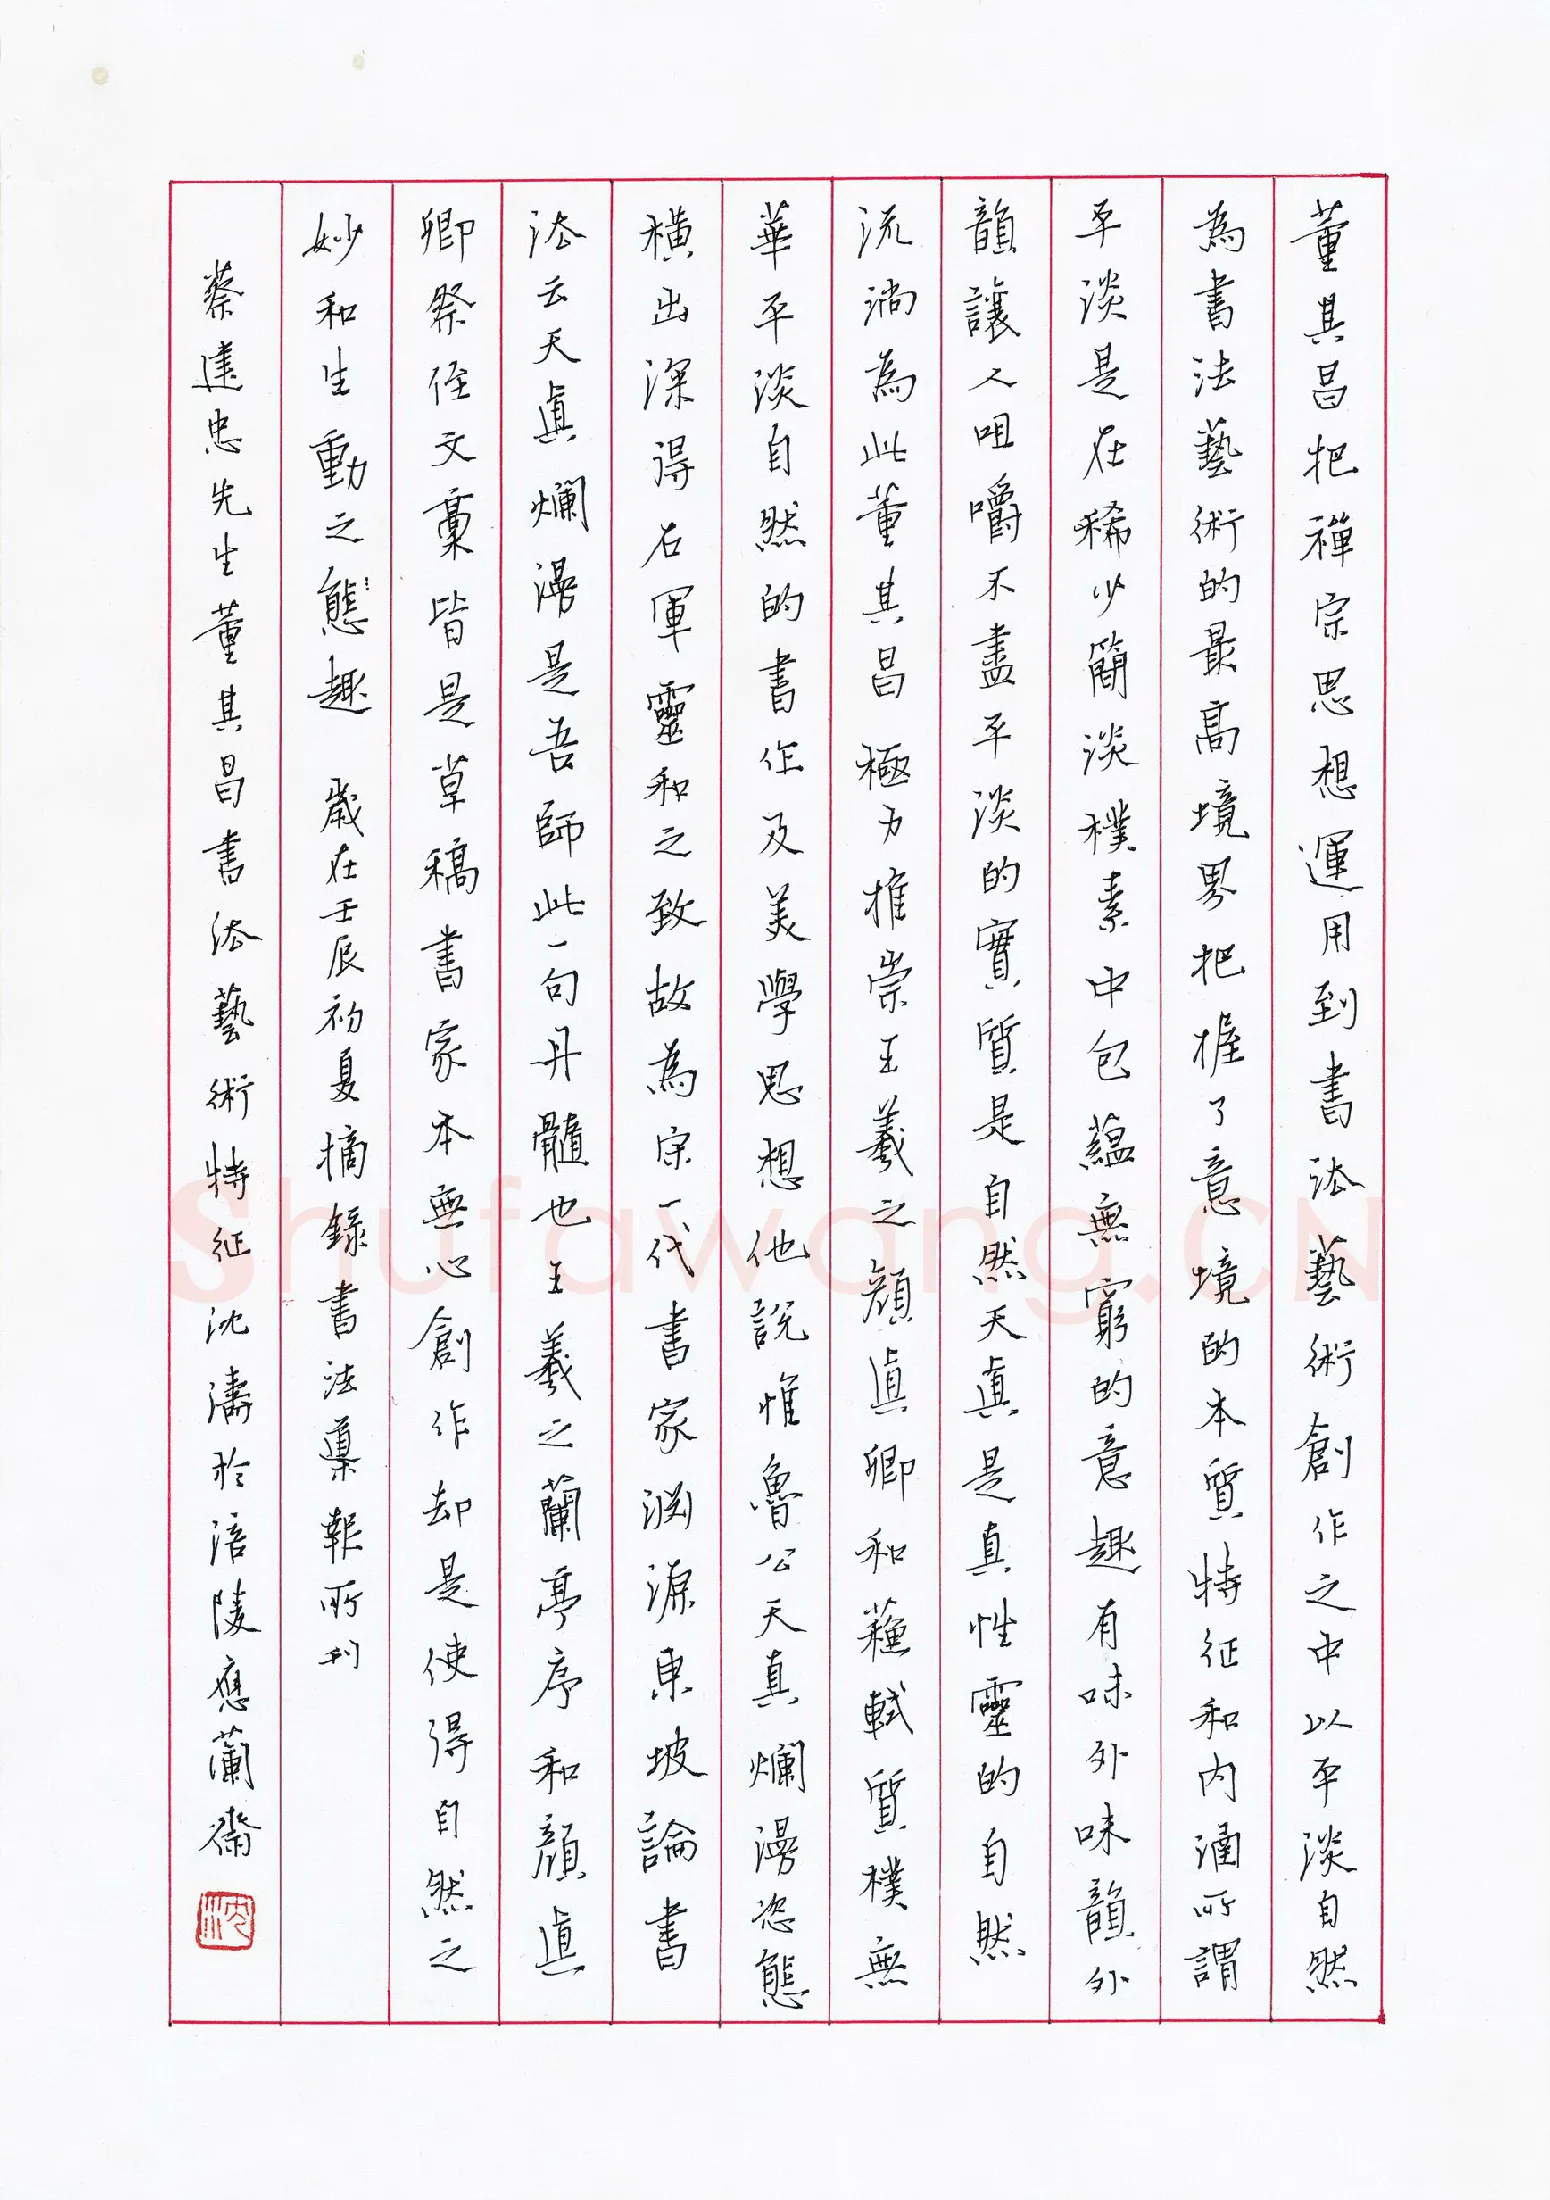 董其昌把禪宗思想運用到書法藝術創作之中以平淡自然
為書法藝術的最高境界把握了意境的本質特征和内涵所謂
平淡是在稀少簡淡樸素中包蘊無窮的意趣有味外味韻外
韻讓人咀嚼不盡平淡的實質是自然天真是真性靈的自然
流淌為此董其昌極力推崇王羲之顔真卿和蘓軾質樸無
華平淡自然的書作及美學思想他説惟魯公天真爛漫恣態
橫出深得右軍靈和之致故為宋一代書家淵源東坡論書
法云天真爛漫是吾師此一句丹髓也王羲之蘭亭序和顔真
卿祭侄文稾皆是草稿書家本無心創作却是使得自然之
妙和生動之態趣 歲在壬辰初夏摘録書法導報所刊
蔡達忠先生董其昌書法藝術特征 沈濤於涪陵應蘭齋
沈
Shufawang.CN